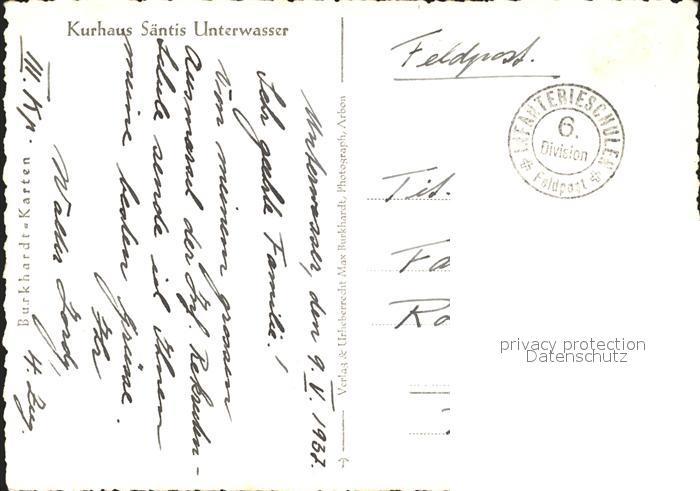 Kurhaus Säntis Unterwasser
Unterwasser, den 9. V. 1937.
Sehr geehrte Familie!
Von meinem grossen
Ausmarsch der Inf. Rekruten-
schule sende ich Ihnen
meine besten Grüsse.
Ihr
Walter
4. Zug.
III. Kp.
Burkhardt-Karten
Verlag & Urheberrecht Max Burkhardt, Photograph, Arbon
Feldpost.
INFANTERIESCHULEN
6.
Division
Feldpost
Tit.
Fa
Ro
privacy protection
Datenschutz